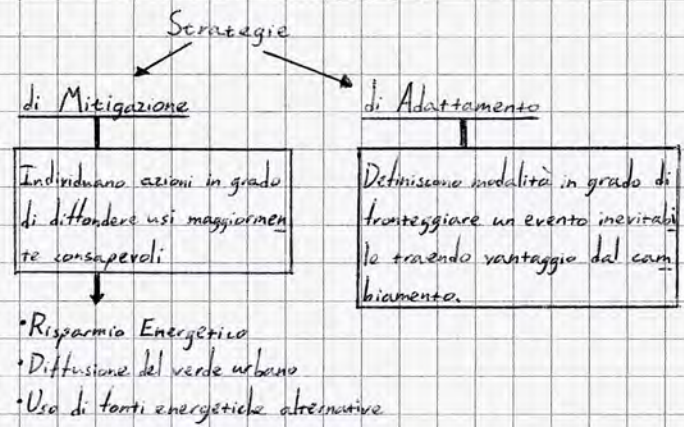 Strategie
di Mitigazione
Individuano azioni in grado
di diffondere usi maggiormen
te consapevoli
• Risparmio Energetico
• Diffusione del verde urbano
• Uso di fonti energetiche alternative
di Adattamento
Definiscono modalità in grado di
fronteggiare un evento inevitabi
le traendo vantaggio dal cam
biamento.